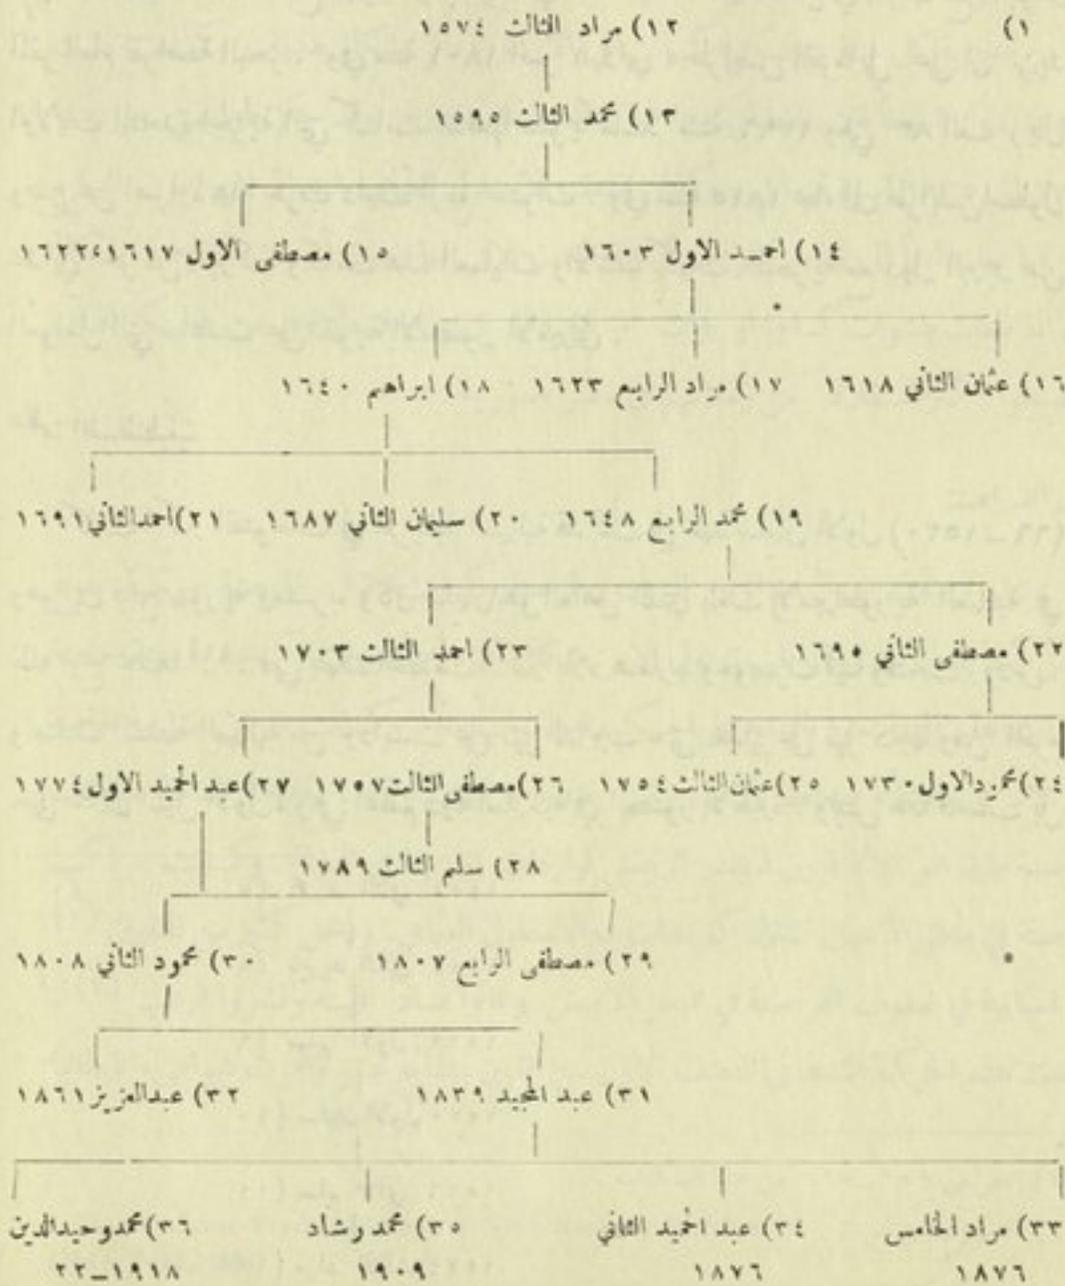 ١) ١٢) مراد الثالث ١٥٧٤
١٣) محمد الثالث ١٥٩٥
١٤) احمد الاول ١٦٠٣ ١٥) مصطفى الاول ١٦١٧،١٦٢٢
١٦) عثمان الثاني ١٦١٨ ١٧) مراد الرابع ١٦٢٣ ١٨) ابراهيم ١٦٤٠
١٩) محمد الرابع ١٦٤٨ ٢٠) سليمان الثاني ١٦٨٧ ٢١) احمد الثاني ١٦٩١
٢٢) مصطفى الثاني ١٦٩٥ ٢٣) احمد الثالث ١٧٠٣
٢٤) محمود الاول ١٧٣٠ ٢٥) عثمان الثالث ١٧٥٤ ٢٦) مصطفى الثالث ١٧٥٧ ٢٧) عبد الحميد الاول ١٧٧٤
٢٨) سليم الثالث ١٧٨٩
٢٩) مصطفى الرابع ١٨٠٧ ٣٠) محمود الثاني ١٨٠٨
٣١) عبد المجيد ١٨٣٩ ٣٢) عبدالعزيز ١٨٦١
٣٣) مراد الخامس ٣٤) عبد الحميد الثاني ٣٥) محمد رشاد ٣٦) محمد وحيد الدين
١٨٧٦ ١٨٧٦ ١٩٠٩ ١٩١٨_٢٢